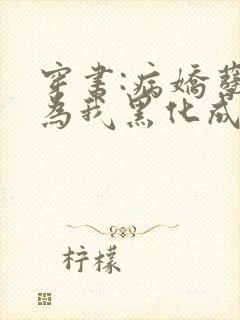 穿书:病娇孽
为我黑化成
柠檬